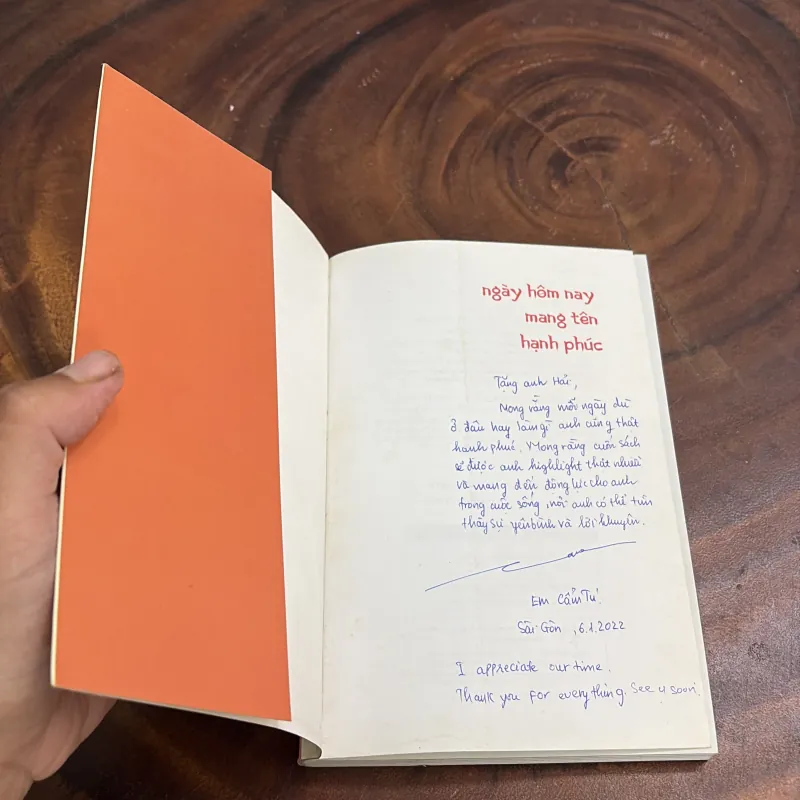 ngày hôm nay
mang tên
hạnh phúc
Tặng anh Hải,
Mong rằng mỗi ngày dù
ở đâu hay làm gì anh cũng thật
hạnh phúc. Mong rằng cuốn sách
sẽ được anh highlight thật nhiều
và mang đến động lực cho anh
trong cuộc sống, nơi anh có thể tìm
thấy sự yên bình và lời khuyên.
Em Cẩm Tú
Sài Gòn, 6.1.2022
I appreciate our time.
Thank you for everything. See u soon.